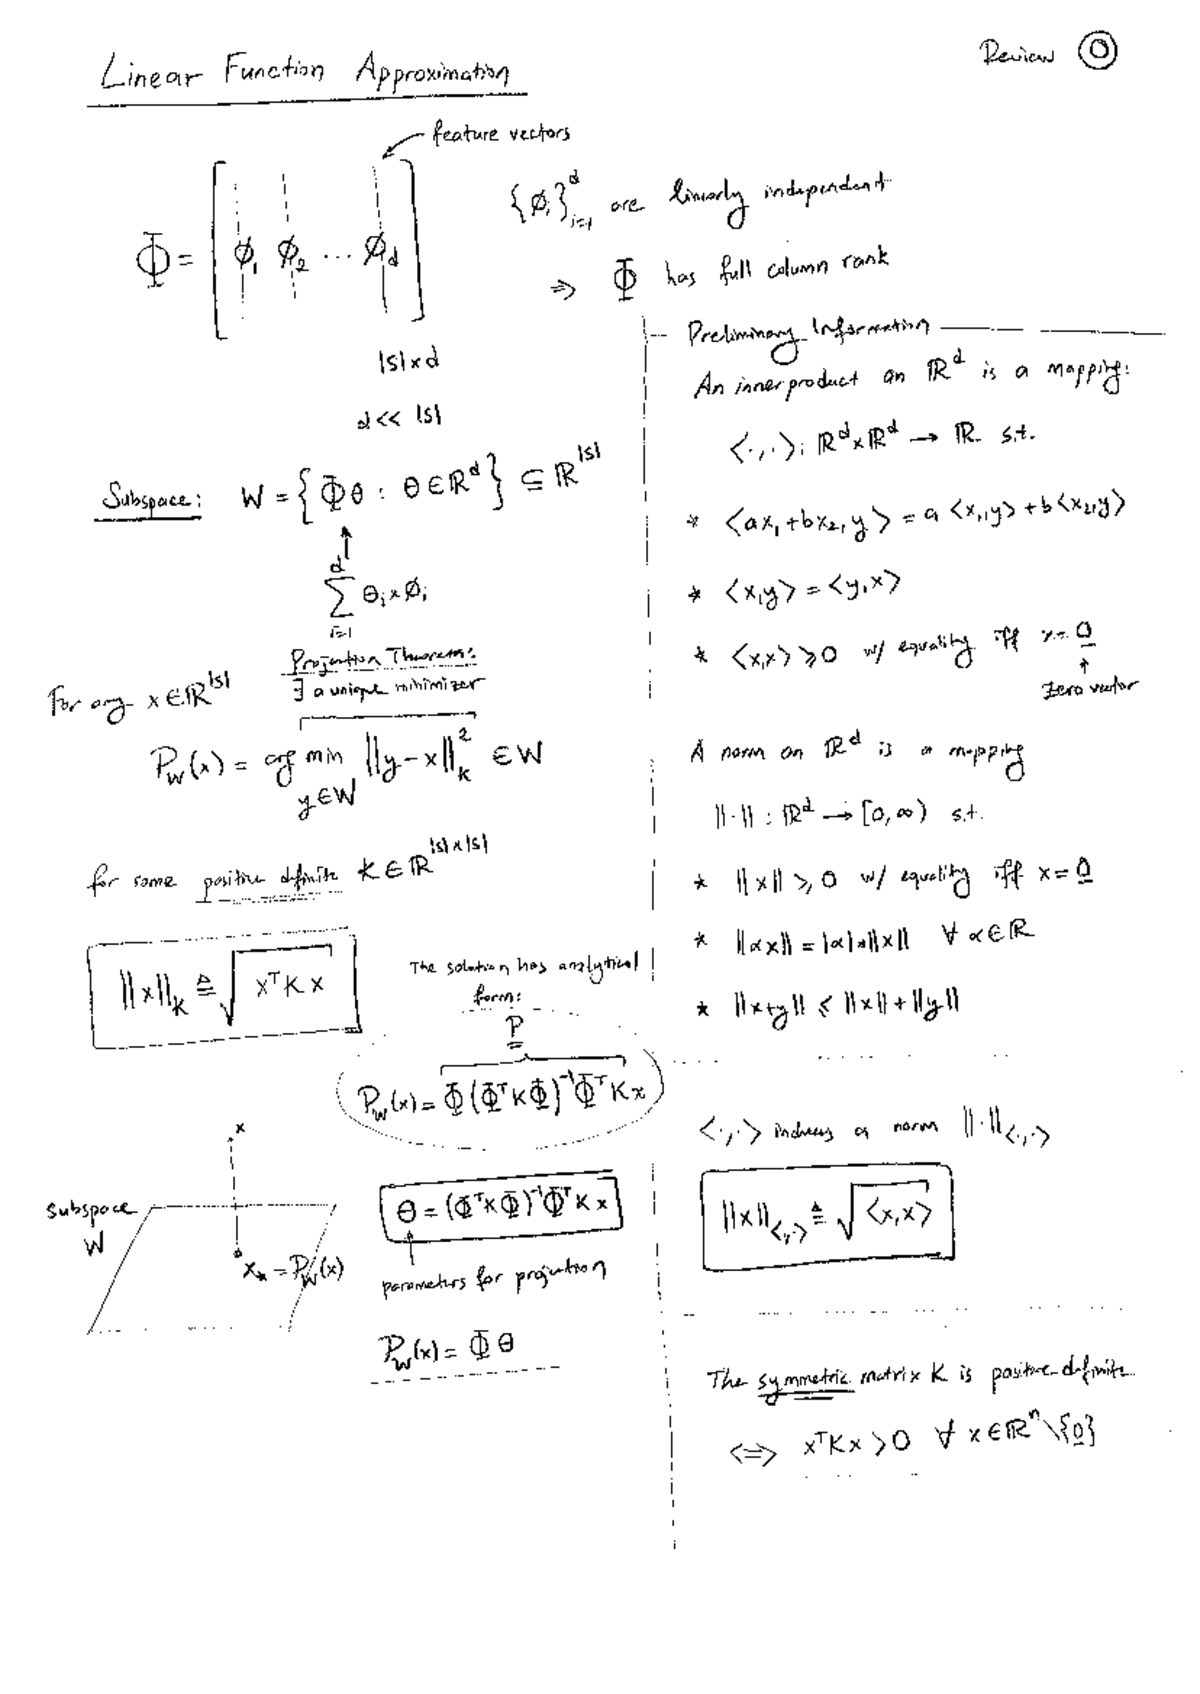 Linear Function Approximation
Review 0
feature vectors
Φ = [ φ₁ φ₂ ... φ_d ]
|S|×d
d << |S|
{φᵢ}ᵢ₌₁ᵈ are linearly independent
⇒ Φ has full column rank
Subspace: W = { Φθ : θ ∈ ℝᵈ } ⊆ ℝ^|S|
∑ᵢ₌₁ᵈ θᵢ × φᵢ
Projection Theorem:
∃ a unique minimizer
For any x ∈ ℝ^|S|
P_W(x) = arg min ‖y − x‖²_K ∈ W
y ∈ W
for some positive definite K ∈ ℝ^|S|×|S|
‖x‖_K ≜ √(xᵀ K x)
The solution has analytical
form:
P
P_W(x) = Φ(Φᵀ K Φ)⁻¹ Φᵀ K x
x
subspace
W
x* = P_W(x)
θ = (Φᵀ K Φ)⁻¹ Φᵀ K x
parameters for projection
P_W(x) = Φ θ
Preliminary Information
An inner product on ℝᵈ is a mapping:
⟨·,·⟩ : ℝᵈ × ℝᵈ → ℝ s.t.
* ⟨ax₁ + bx₂, y⟩ = a ⟨x₁, y⟩ + b ⟨x₂, y⟩
* ⟨x, y⟩ = ⟨y, x⟩
* ⟨x, x⟩ ⩾ 0 w/ equality iff x = 0
zero vector
A norm on ℝᵈ is a mapping
‖·‖ : ℝᵈ → [0, ∞) s.t.
* ‖x‖ ⩾ 0 w/ equality iff x = 0
* ‖αx‖ = |α| * ‖x‖ ∀ α ∈ ℝ
* ‖x + y‖ ⩽ ‖x‖ + ‖y‖
⟨·,·⟩ induces a norm ‖·‖_⟨·,·⟩
‖x‖_⟨·,·⟩ ≜ √⟨x, x⟩
The symmetric matrix K is positive definite
⟺ xᵀ K x > 0 ∀ x ∈ ℝⁿ \ {0}